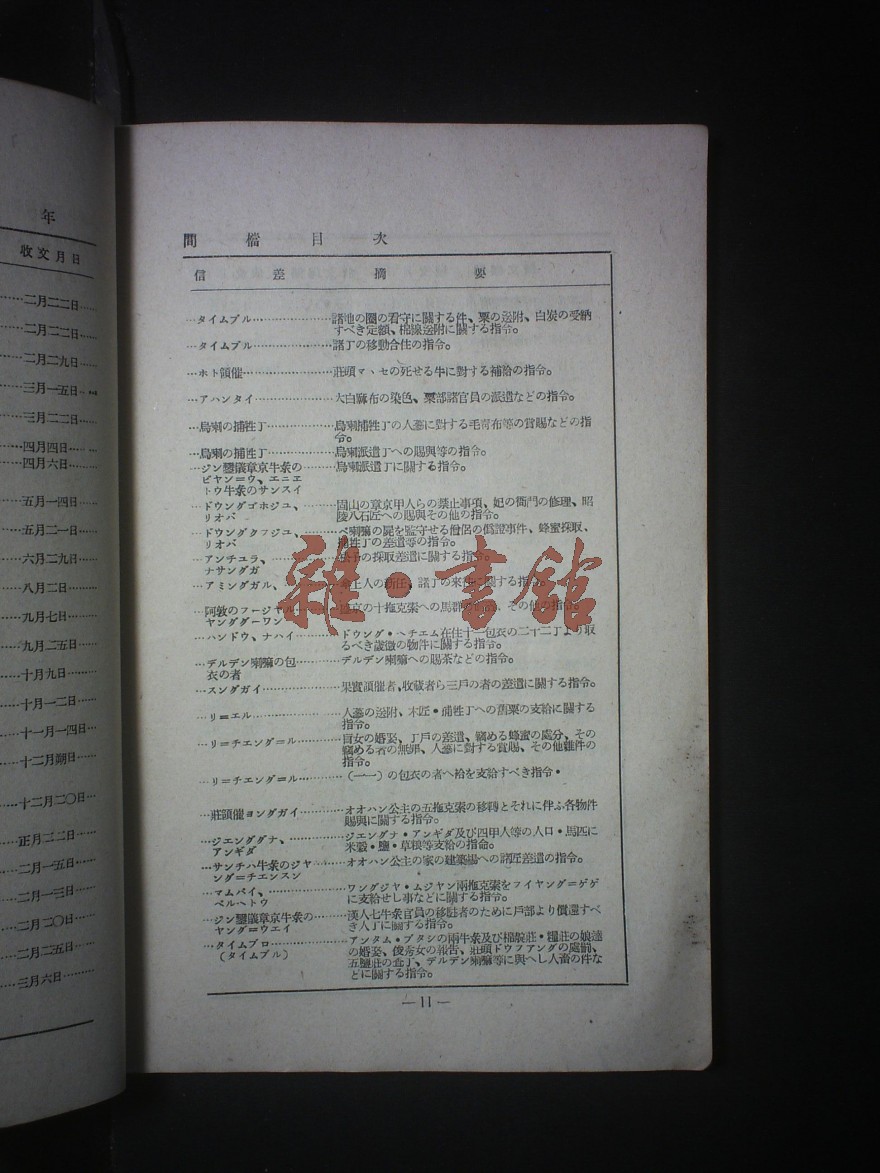 年
收文月日
二月二二日
二月二二日
二月二九日
三月一五日
三月二二日
四月四日
四月六日
五月一四日
五月二一日
六月二九日
八月二日
九月七日
九月二五日
十月九日
十月一二日
十一月一四日
十二月朔日
十二月二〇日
正月二二日
二月一五日
二月一三日
二月二〇日
二月二五日
三月六日
間檔目次
信差 摘要
…タイムブル………………諸地の園の看守に關する件、粟の送附、白炭の受納
すべき定額、棉線送附に關する指令。
…タイムブル………………諸丁の移動合住の指令。
…ホト領催…………………莊頭マヽセの死せる牛に對する補給の指令。
…アハンタイ………………大白麻布の染色、粟部諸官員の派遣などの指令。
…烏喇の捕牲丁……………烏喇捕牲丁の人蔘に對する毛青布等の賞賜などの指
令。
…烏喇の捕牲丁……………烏喇派遣丁への賜與等の指令。
…ジン鑾儀章京牛彔の……烏喇派遣丁に關する指令。
ビヤン=ウ、エニエ
トウ牛彔のサンスイ
…ドウングゴホジユ、……固山の章京甲人らの禁止事項、妃の衙門の修理、昭
リオバ 陵八石匠への賜與その他の指令。
…ドウングクフジユ、……ベ喇嘛の屍を監守せる僧侶の僞證事件、蜂蜜採取、
リオバ 捕牲丁の差遣等の指令。
…アンチユラ、……の採取差遣に關する指令。
ナサンダガ
…アミングガル、……土人の新任、諸丁の來に關する指令。
…阿敦のフージヤル……京の十拖克索への馬群の、その他の指令。
ヤングダーワン
…ハンドウ、ナハイ………ドウング・ヘチエム在住十一包衣の二十二丁より取
るべき歲徵の物件に關する指令。
…デルデン喇嘛の包………デルデン喇嘛への賜茶などの指令。
衣の者
…スンダガイ………………果實領催者、收藏者ら三戶の者の差遣に關する指令。
…リ=エル…………………人蔘の送附、木匠・捕牲丁への舊粟の支給に關する
指令。
…リ=チエング=ル………盲女の婚娶、丁戶の差遣、竊める蜂蜜の處分、その
竊める者の無罪、人蔘に對する賞賜、その他雜件の
指令。
…リ=チエング=ル………（一一）の包衣の者へ給を支給すべき指令・
…莊領催ヨングガイ………オオハン公主の五拖克索の移轉とそれに伴ふ各物件
賜與に關する指令。
…ジエングダナ、…………ジエングナ・アンギダ及び四甲人等の人口・馬匹に
アンギダ 米穀・鹽・草糧等支給の指命。
…サンチハ牛彔のジヤ……オオハン公主の家の建築場への諸匠差遣の指令。
ング=チエンスン
…マムバイ、………………ワングジヤ・ムジヤン兩拖克索をフイヤング=ゲゲ
ベルヘトウ に支給せし事などに關する指令。
…ジン鑾儀章京牛彔の……漢人七牛彔官員の移駐者のために戶部より償還すべ
ヤング=ウエイ き人丁に關する指令。
…タイムブロ………………アンタム・ブタシの兩牛彔及び棉靛莊・糧莊の娘達
（タイムブル） の婚娶、俊秀女の報告、莊頭ドウフアングの處罰、
五鹽莊の查丁、デルデン喇嘛等に與へし人畜の件な
どに關する指令。
—11—
雜·書館